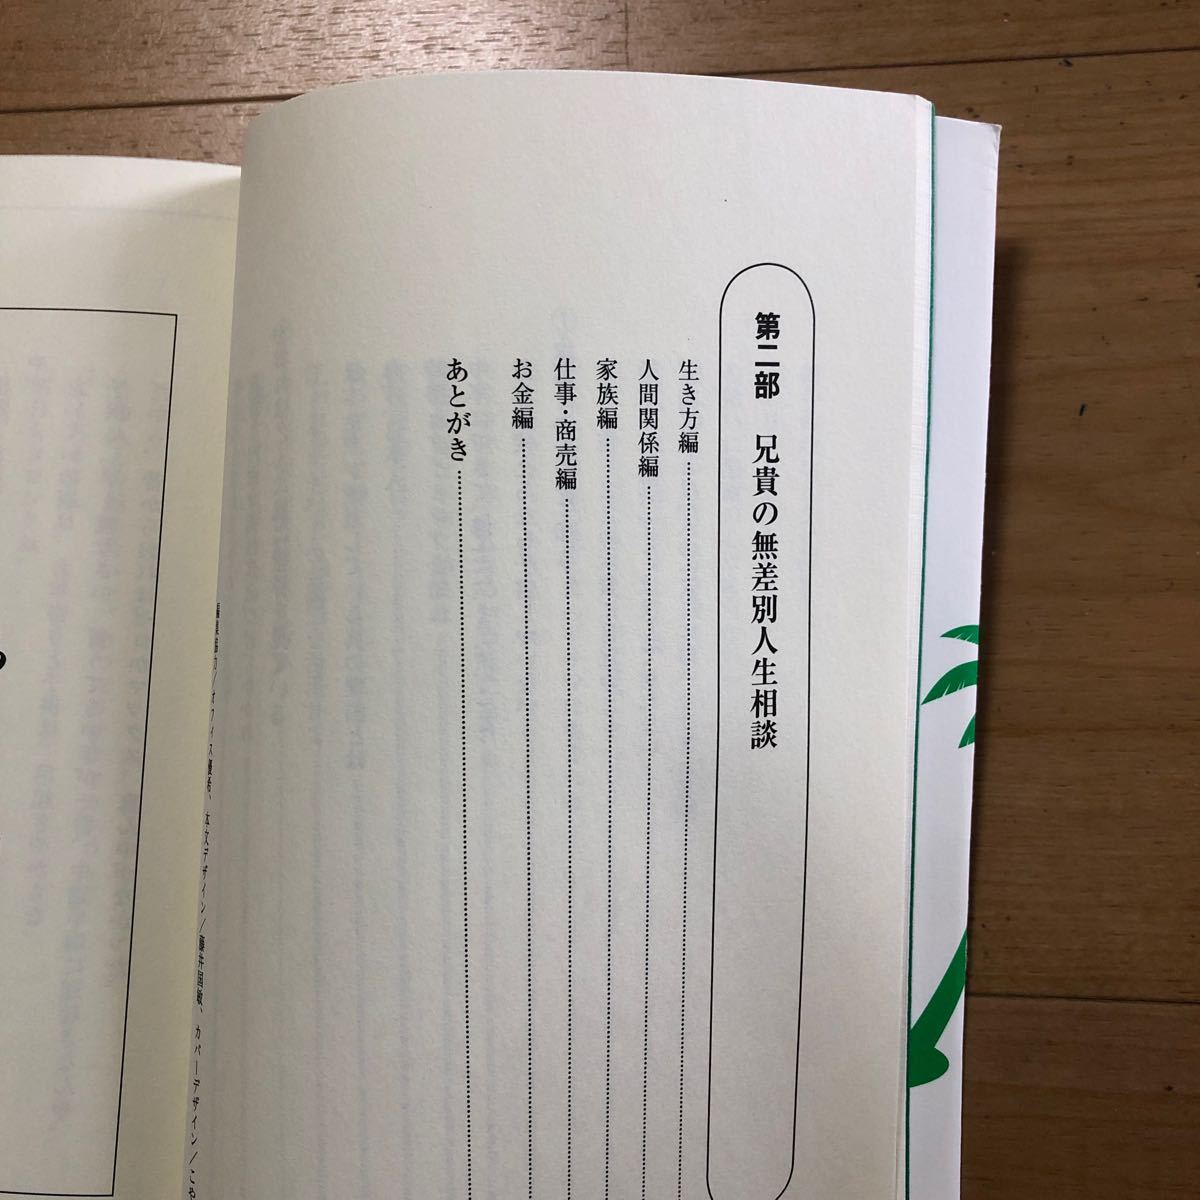 第二部　兄貴の無差別人生相談
生き方編
人間関係編
家族編
仕事・商売編
お金編
あとがき
編集協力／オフィス優希、本文デザイン／藤井国敏、カバーデザイン／こや